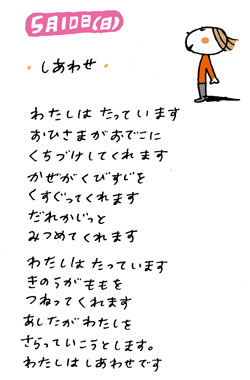 5月10日(日)
・しあわせ・
わたしは たっています
おひさまがおでこに
くちづけしてくれます
かぜがくびすじを
くすぐってくれます
だれかじっと
みつめてくれます
わたしは たっています
きのうがももを
つねってくれます
あしたがわたしを
さらっていこうとします。
わたしは しあわせです